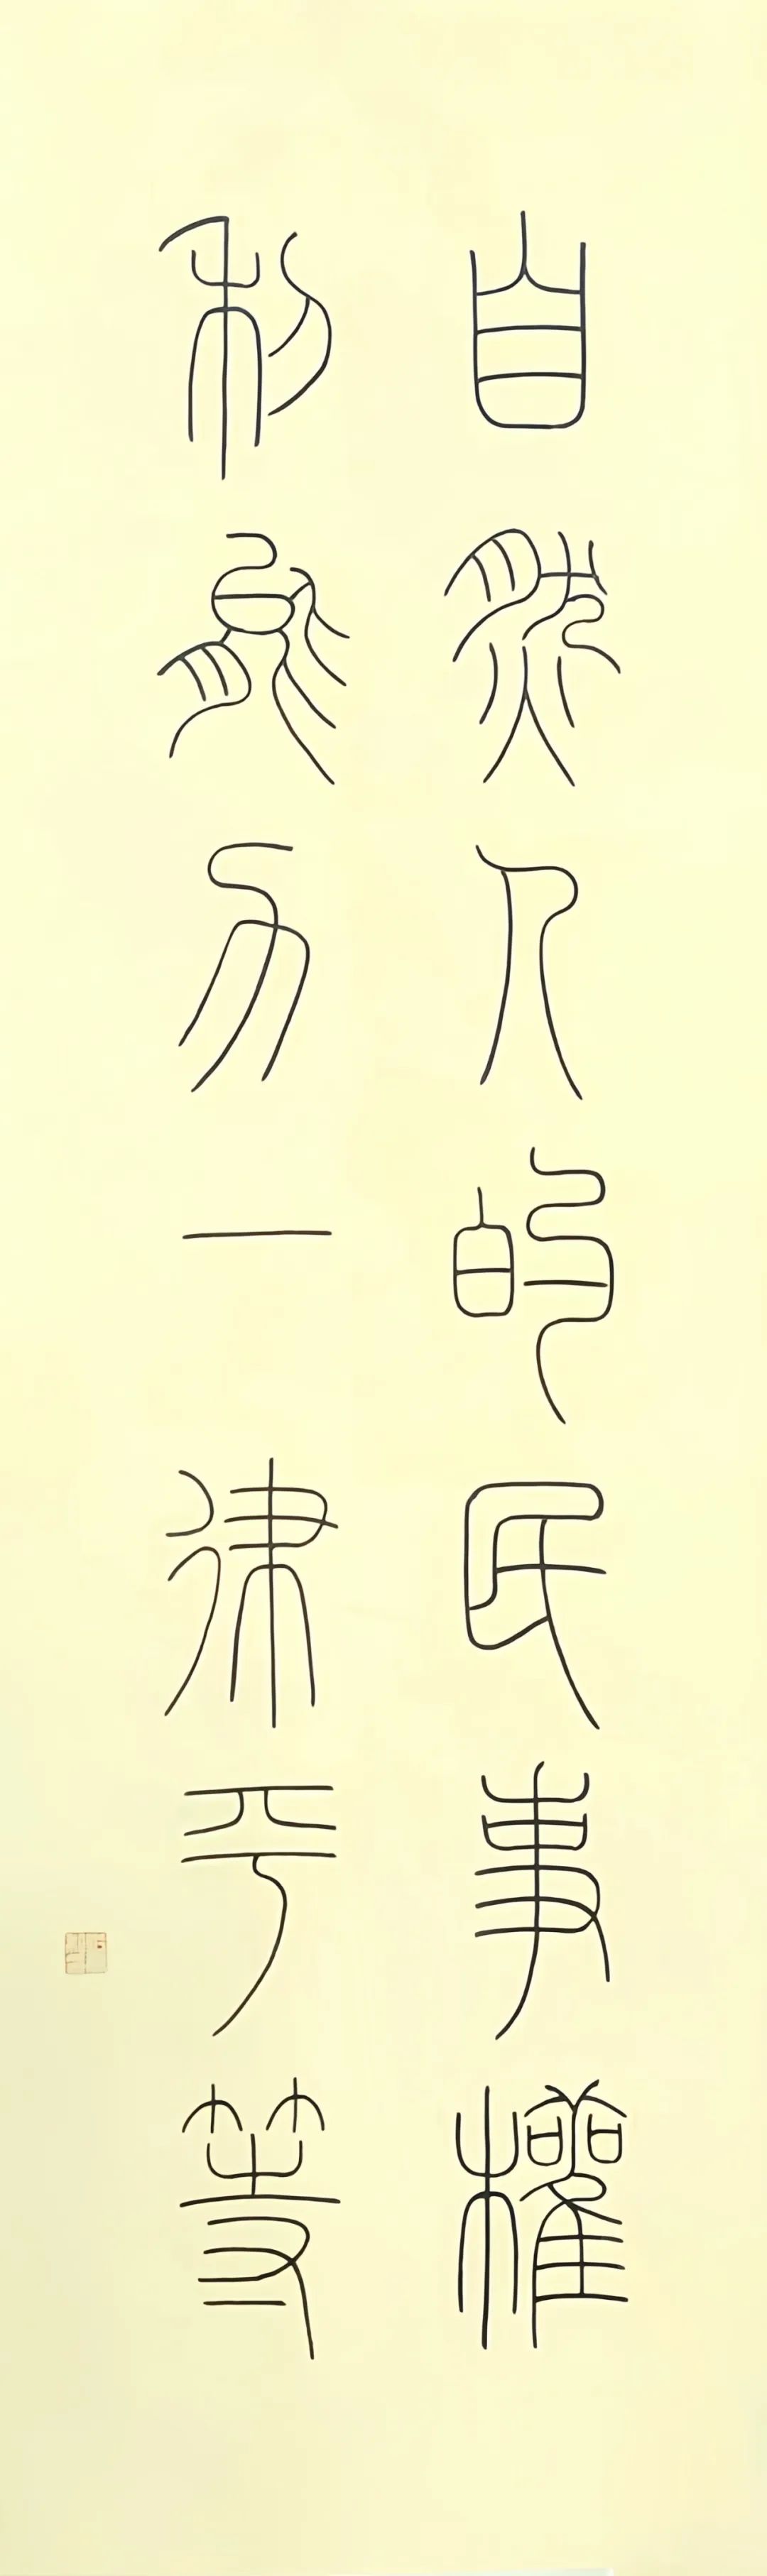 自然人的民事權
利能力一律平等